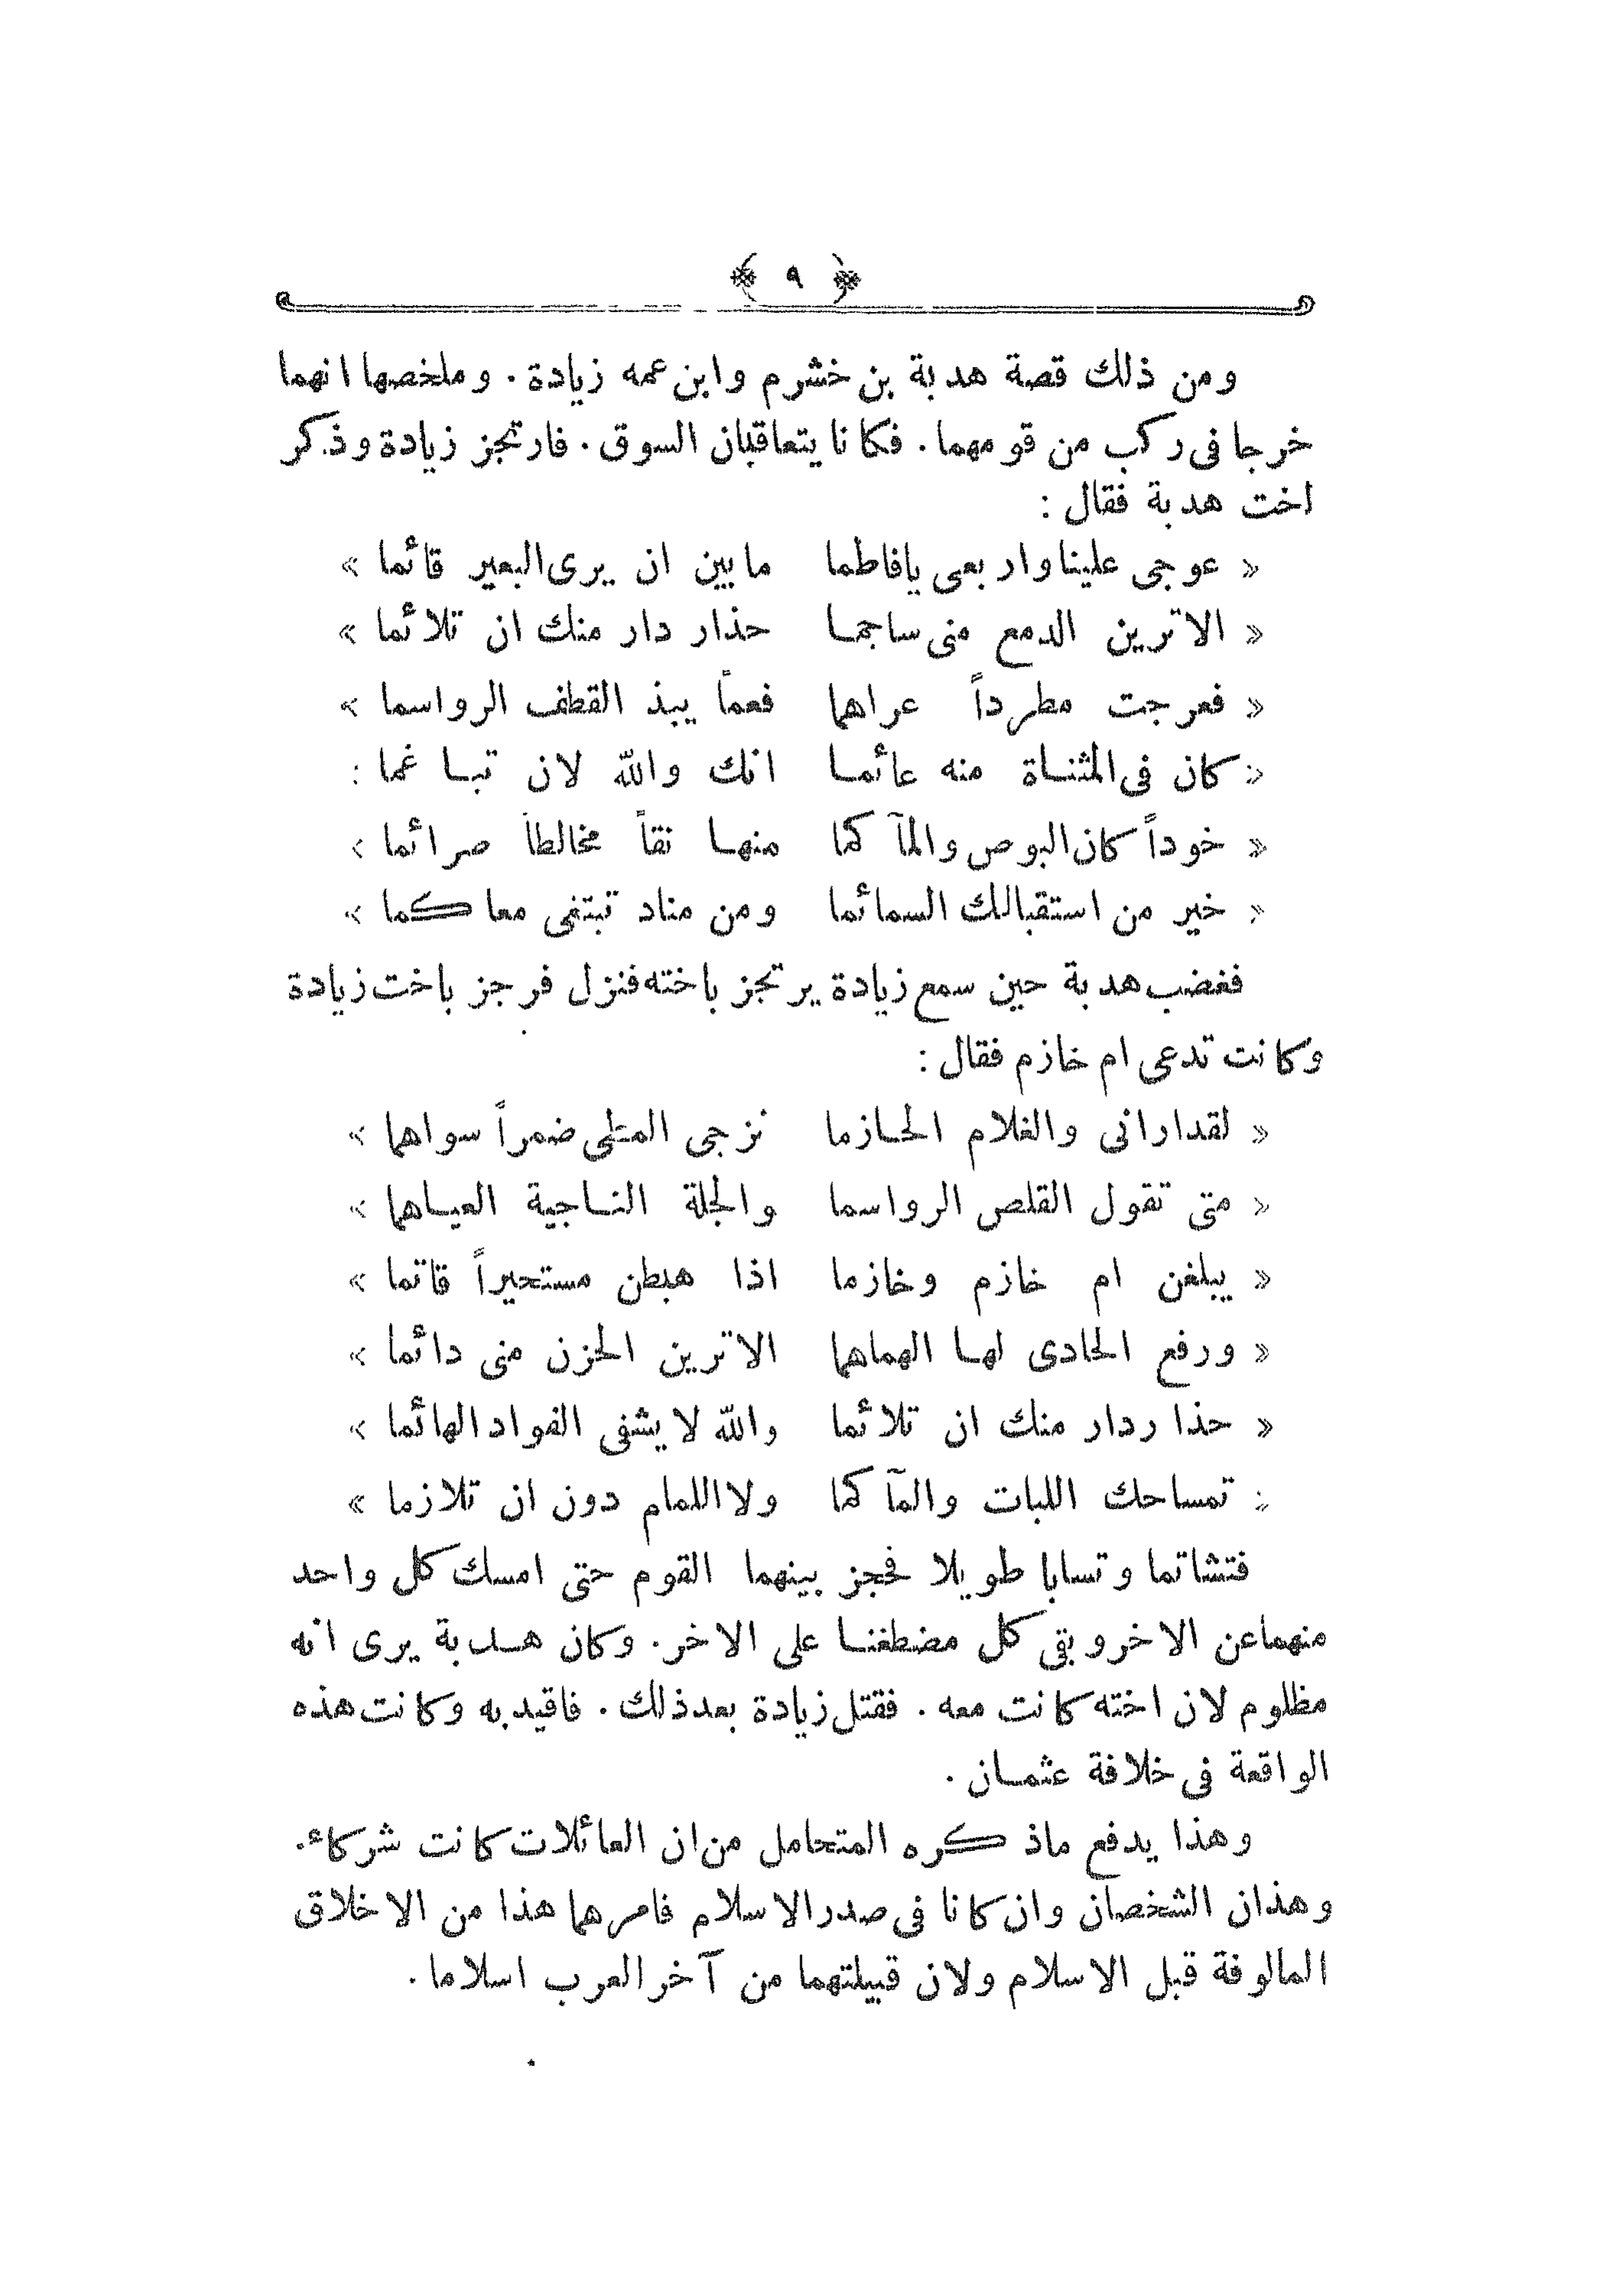 ﴿ ٩ ﴾
ومن ذلك قصة هدبة بن خشرم وابن عمه زيادة . وملخصها انهما
خرجا فى ركب من قومهما . فكانا يتعاقبان السوق . فارتجز زيادة وذكر
اخت هدبة فقال :
« عوجى علينا واربعى يافاطما مابين ان يرى البعير قائما »
« الاترين الدمع منى ساجما حذار دار منك ان تلائما »
« فعرجت مطرداً عراهما فعماً يبذ القطف الرواسما »
« كان فى المثناة منه عائما انك والله لان تباغما »
« خوداً كان البوص والمآكما منها نقاً مخالطاً صرائما »
« خير من استقبالك السمائما ومن مناد تبتغى معاكما »
فغضب هدبة حين سمع زيادة يرتجز باخته فنزل فرجز باخت زيادة
وكانت تدعى ام خازم فقال :
« لقد ارانى والغلام الحازما نزجى المطى ضمراً سواهما »
« متى تقول القلص الرواسما والجلة الناجية العياهما »
« يبلغن ام خازم وخازما اذا هبطن مستحيراً قاتما »
« ورفع الحادى لها الهماهما الاترين الحزن منى دائما »
« حذار دار منك ان تلائما والله لا يشفى الفواد الهائما »
« تمساحك اللبات والمآكما ولا اللمام دون ان تلازما »
فتشاتما وتسابا طويلا فحجز بينهما القوم حتى امسك كل واحد
منهما عن الاخر وبقى كل مضطغنا على الاخر . وكان هدبة يرى انه
مظلوم لان اخته كانت معه . فقتل زيادة بعد ذلك . فاقيد به وكانت هذه
الواقعة فى خلافة عثمان .
وهذا يدفع ماذكره المتحامل من ان العائلات كانت شركاء .
وهذان الشخصان وان كانا فى صدر الاسلام فامرهما هذا من الاخلاق
المألوفة قبل الاسلام ولان قبيلتهما من آخر العرب اسلاما .